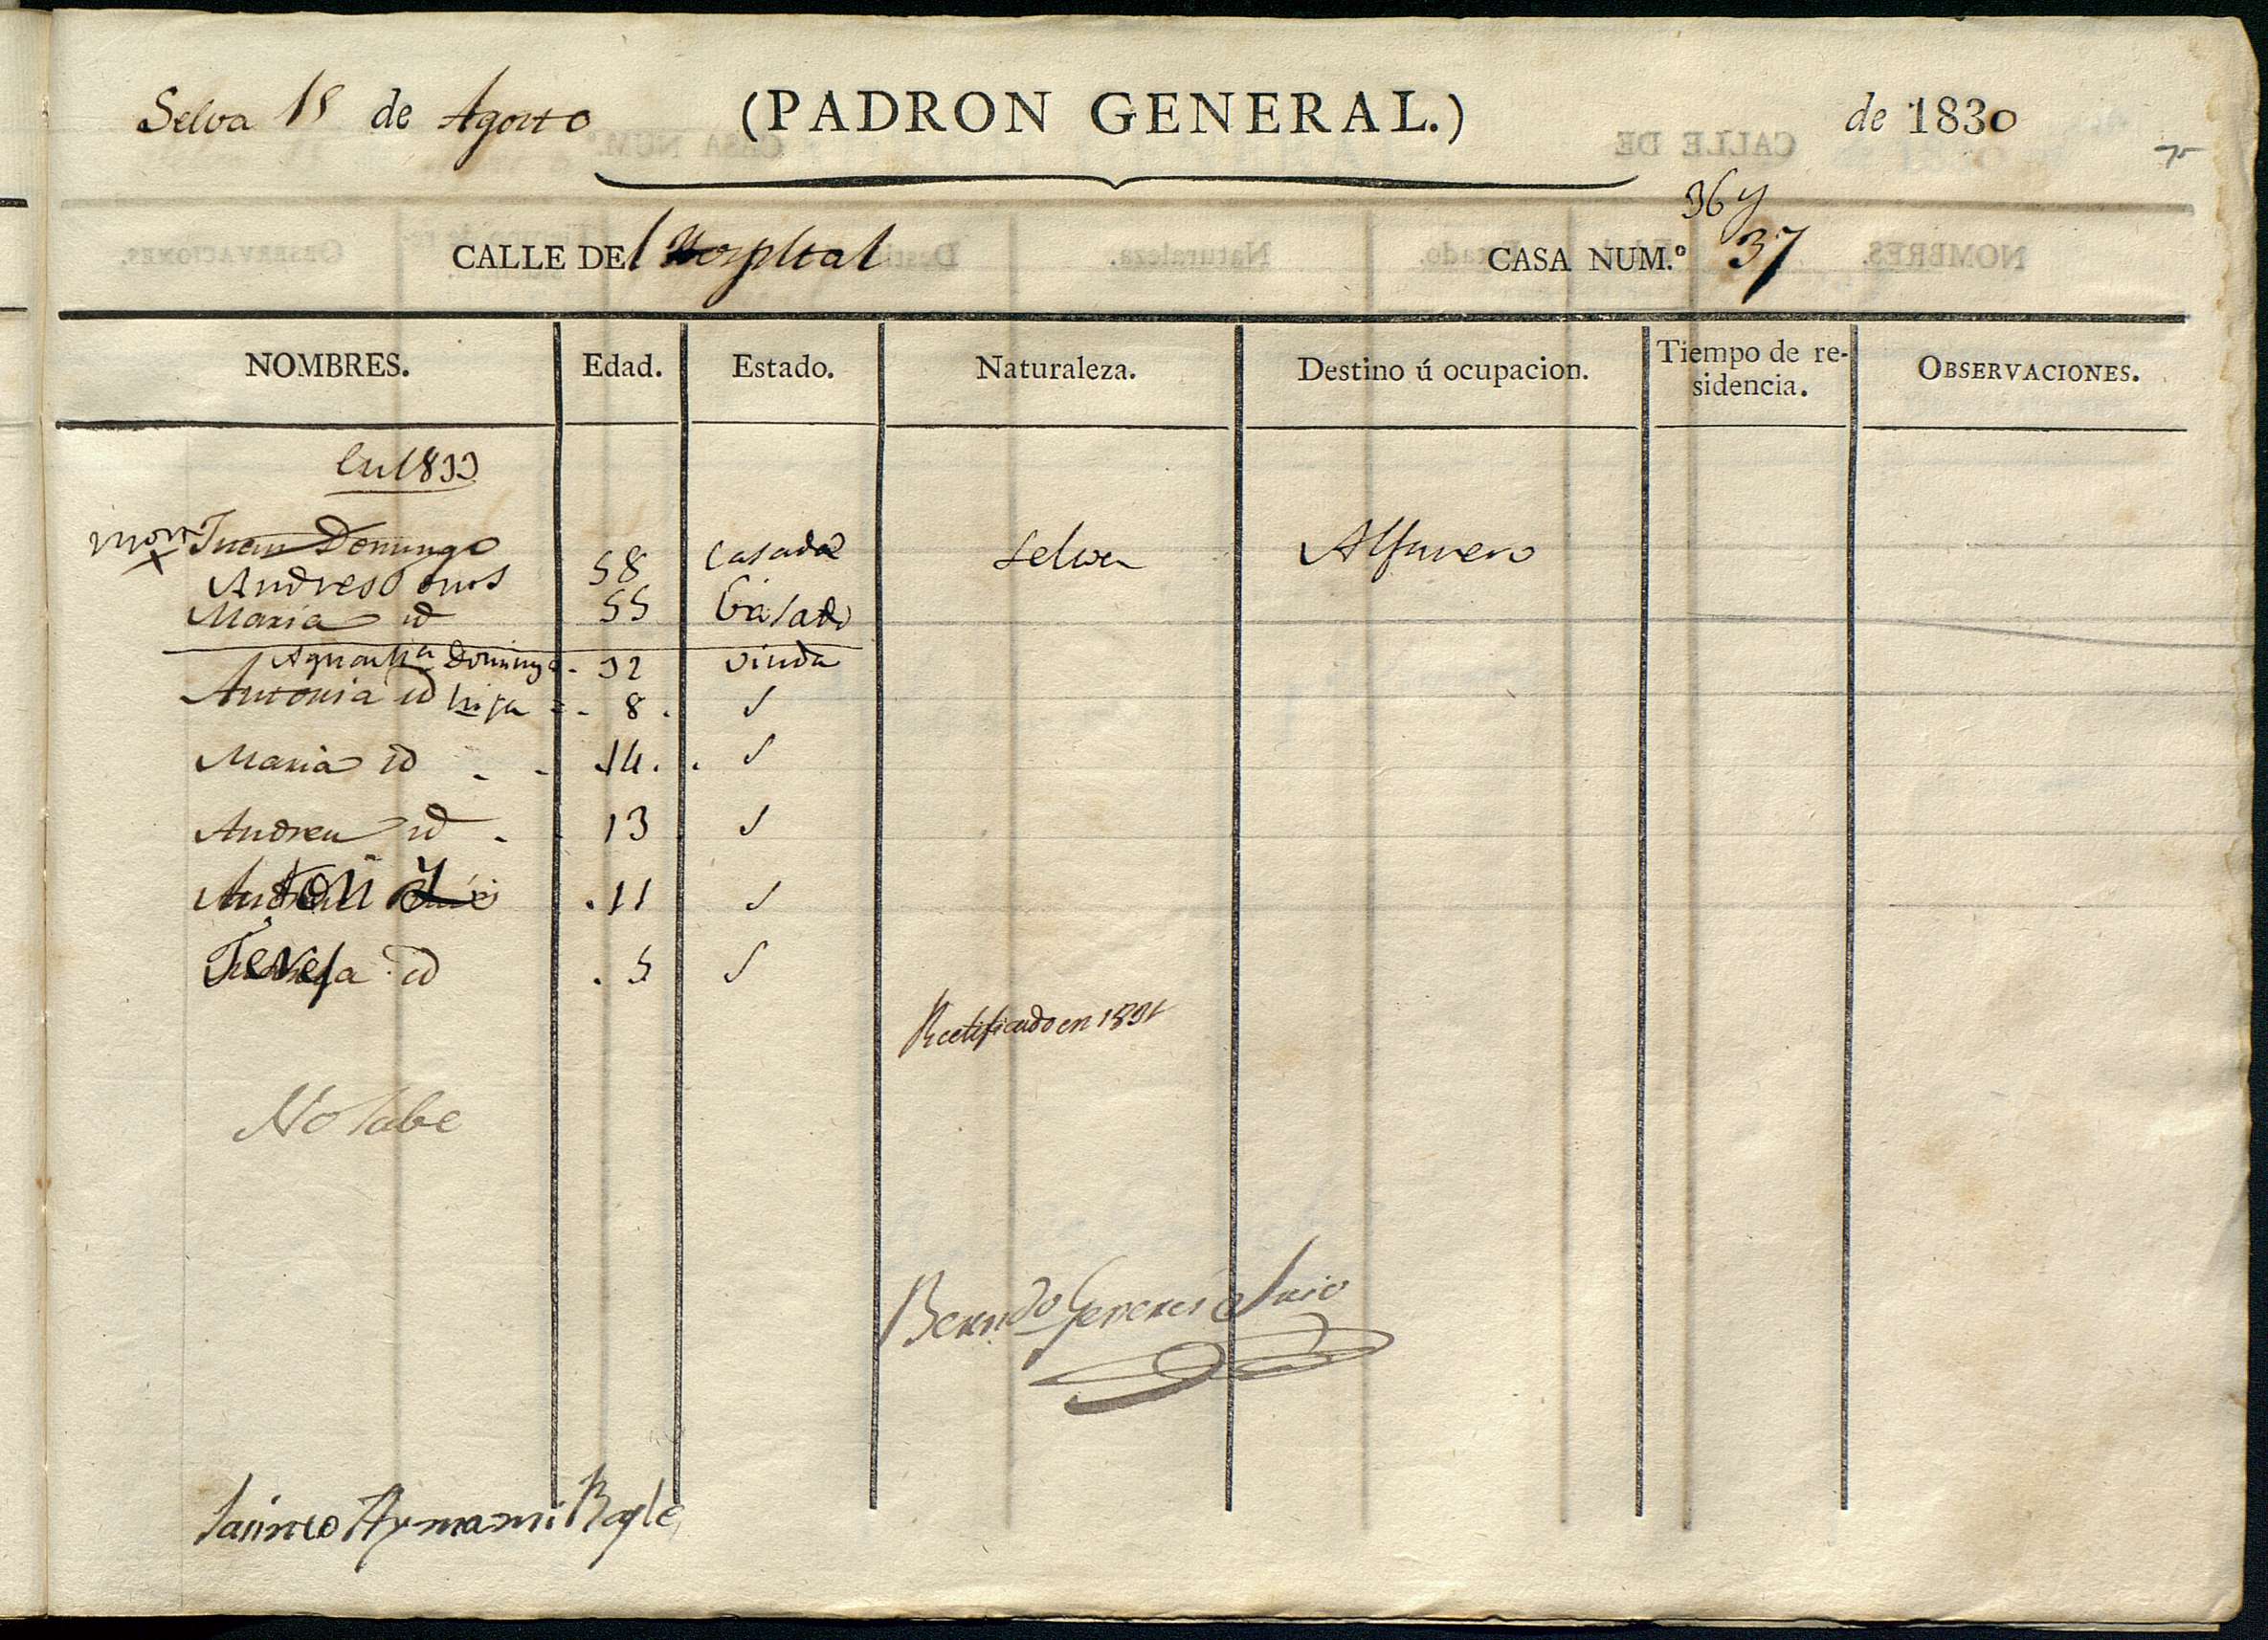 Selva 18 de Agosto (PADRON GENERAL.) de 1830
36 y
CALLE DEl Hospital CASA NUM.º 37
NOMBRES. Edad. Estado. Naturaleza. Destino ú ocupacion. Tiempo de re-sidencia. OBSERVACIONES.
En 1833
Juan Domingo
Andres 58 Casado Selva Alfarero
Maria id 55 Casada
Domingo 32 viuda
Antonia id hija 8 S
Maria id 14 S
Andreu id 13 S
Anton 11 S
Teresa id 5 S
Rectificado en 1831
No sabe
Berndo Generes Srio
Jaime Aymami Bayle